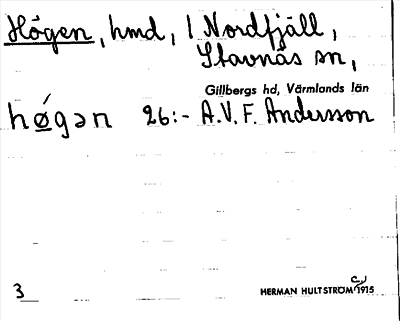 Högen, hmd, 1 Nordfjäll,
Stavnäs sn,
Gillbergs hd, Värmlands län
hǿgən 26:- A.V.F. Andersson
3
HERMAN HULTSTRÖM 1915